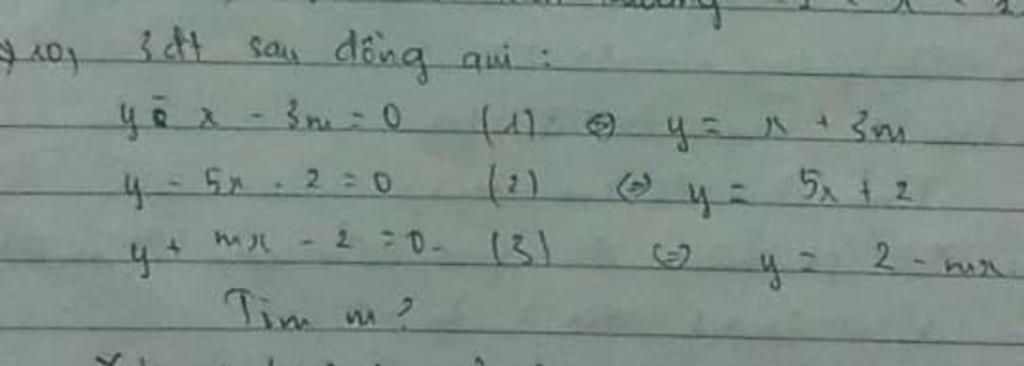 10, 3 đt sau đồng qui :
y - x - 3m = 0 (1) ⇔ y = x + 3m
y - 5x - 2 = 0 (2) ⇔ y = 5x + 2
y + mx - 2 = 0 (3) ⇔ y = 2 - mx
Tìm m ?